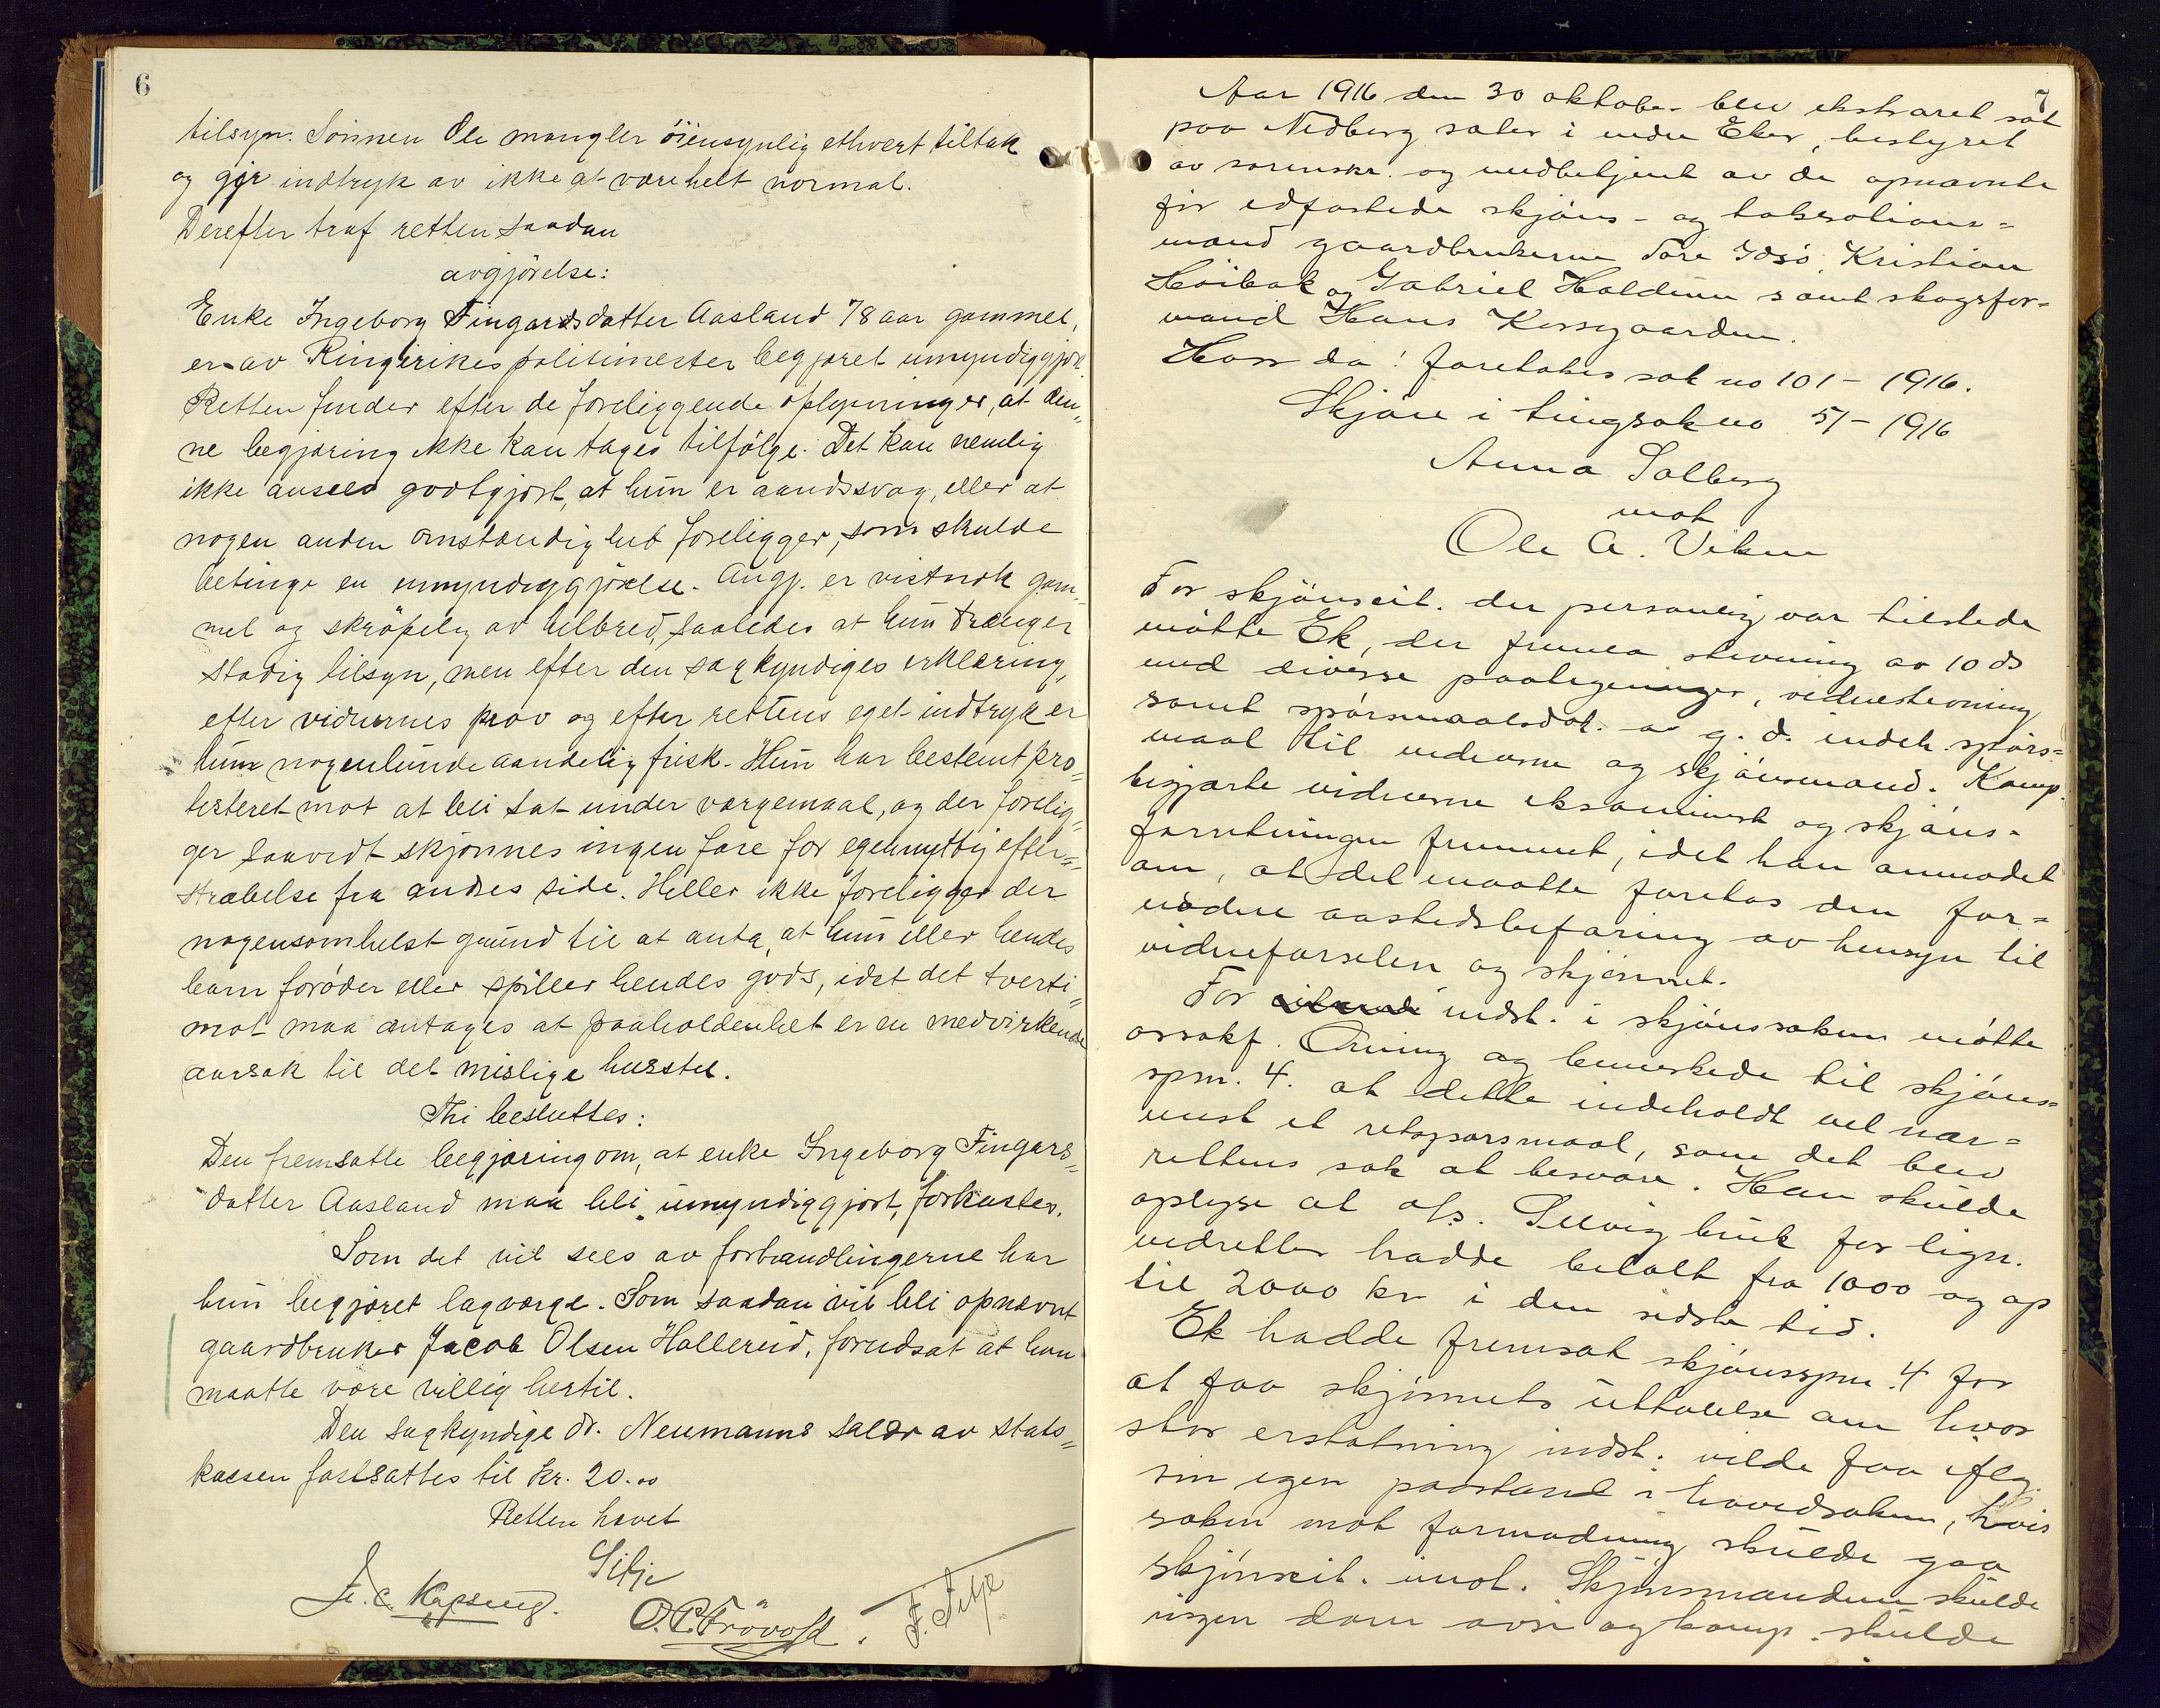 6
tilsyn. Sönnen Ole mangler öiensynlig ethvert tiltak
og gjør indtryk av ikke at være helt normal.
Derefter traf retten saadan
avgjörelse:
Enke Ingeborg Fingarsdatter Aasland 78 aar gammel,
er av Ringerikes politimester begjæret umyndiggjort.
Retten finder efter de foreliggende oplysninger, at den„
ne begjæring ikke kan tages tilfölge. Det kan nemlig
ikke ansees godtgjort, at hun er aandssvag, eller at
nogen anden omstændighet foreligger, som skulde
betinge en umyndiggjörelse. Angj. er vistnok gam„
mel og skröpelig av helbred, saaledes at hun trænger
stadig tilsyn, men efter den sagkyndiges erklæring,
efter vidnernes prov og efter rettens eget indtryk er
hun nogenlunde aandelig frisk. Hun har bestemt pro„
testeret mot at bli sat under vergemaal, og der forelig„
ger saavidt skjönnes ingen fare for egennyttig efter=
stræbelse fra andres side. Heller ikke foreligger der
nogensomhelst grund til at anta, at hun eller hendes
barn foröder eller spiller hendes gods, idet det tverti„
mot maa antages at paaholdenhet er en medvirkende
aarsak til det mislige husstel.
Thi besluttes:
Den fremsatte begjæring om, at enke Ingeborg Fingars„
datter Aasland maa bli umyndiggjort, forkastes.
Som det vil sees av forhandlingerne har
hun begjæret lagværge. Som saadan vil bli opnævnt
gaardbruker Jacob Olsen Hallerud, forudsat at han
maatte være villig hertil.
Den sagkyndige dr. Neumanns salær av stats„
kassen fastsattes til kr. 20.00
Retten hævet
Silje
O. P. Frövold. F. Silje
7
Aar 1916 den 30 oktober blev ekstraret sat
paa Nedberg sater i nedre Eker, bestyret
av sorenskr. og medbetjent av de opnævnte
før edfæstede skjöns- og taksations=
mænd gaardbrukerne Tore Idsö, Kristian
Höibak og Gabriel Holdenm samt skogsfor=
mand Hans Korsgaarden.
Hvor da! foretokes sak no 101 - 1916.
Skjön i tingsak no 51 - 1916
Anna Solberg
mot
Ole A. Viken
For skjönscit. der personlig var tilstede
mötte Ek, der fremla stevning av 10 ds
med diverse paategninger, vidnestevning
samt spörsmaalsdok. av g. d. indeh. spörs=
maal til vidnerne og skjönsmænd. Komp.
begjærte vidnerne eksaminert og skjöns=
forretningen fremmet, idet han anmodet
om, at det maatte foretas den for=
nödne aastedsbefaring av hensyn til
vidneførselen og skjönnet.
For indst. i skjönssaken mötte
orsakf. Orning og bemerkede til skjöns=
spm. 4. at dette indeholdt vel nær=
mest et retsspørsmaal, som det blev
rettens sak at besvare. Han skulde
oplyse at a/s. Selvig bruk for lign.
vedretter hadde betalt fra 1000 og op
til 2000 kr i den sidste tid.
Ek hadde fremsat skjönsspm. 4 for
at faa skjönnets uttalelse om hvor
stor erstatning indst. vilde faa iflg.
sin egen paastand i hovedsaken, hvis
saken mot formodning skulde gaa
skjönscit. imot. Skjönsmændene skulde
ingen dom avsi og komp. skulde